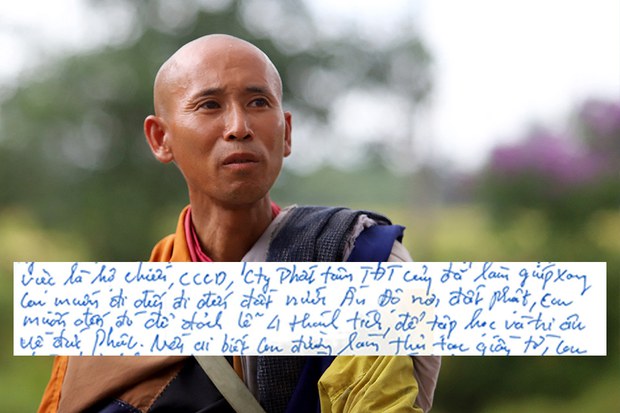 Việc là hộ chiếu, CCCD, Cty Phát tâm TĐT cũng đã làm giúp xong
Con muốn đi đến đi đến đất nước Ấn Độ nơi đất phật, con
muốn đến đó để đảnh lễ 4 thánh tích, để tập học và tri ân
về đức Phật. Nếu ai biết con đường làm thủ tục giấy tờ, con